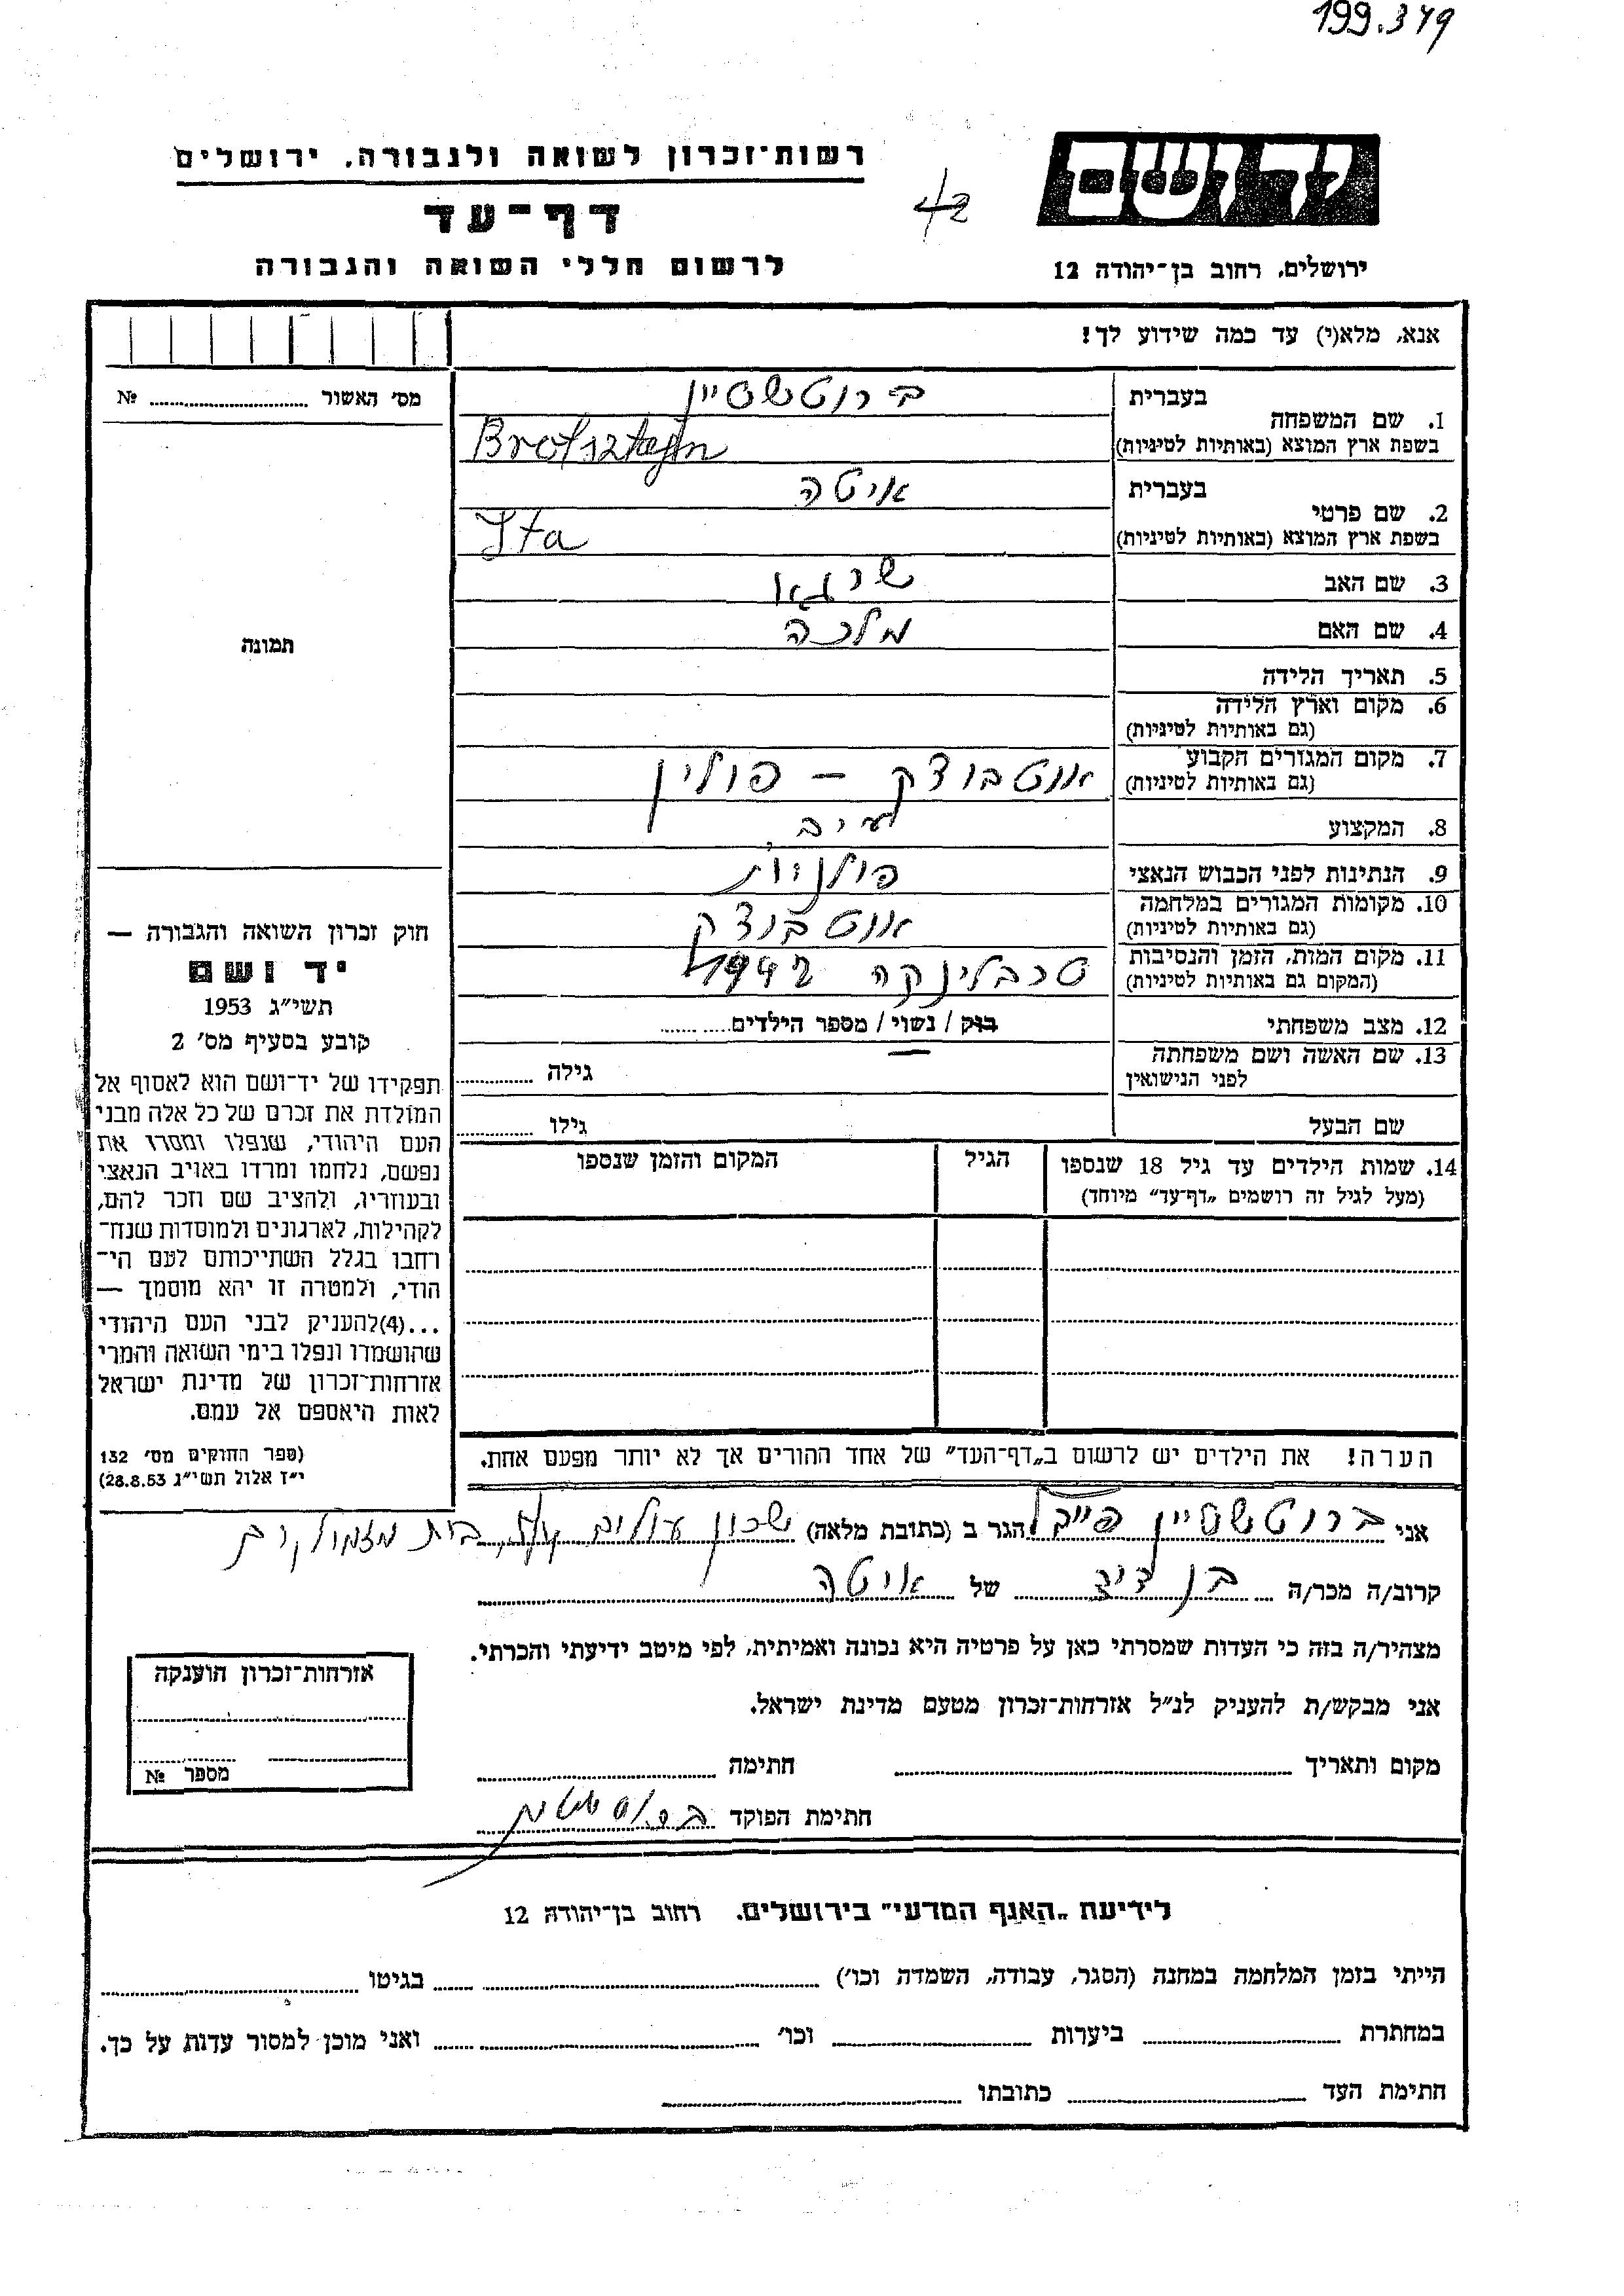 199.349
רשות־זכרון לשואה ולגבורה, ירושלים
יד ושם
42
דף־עד
לרשום חללי השואה והגבורה
ירושלים, רחוב בן־יהודה 12
אנא, מלא(י) עד כמה שידוע לך!
מס׳ האשור № 
תמונה
1. שם המשפחה
בעברית ברוטשטיין
בשפת ארץ המוצא (באותיות לטיניות) Brotsztejn
2. שם פרטי
בעברית איטה
בשפת ארץ המוצא (באותיות לטיניות) Ita
3. שם האב שרגא
4. שם האם מלכה
5. תאריך הלידה
6. מקום וארץ הלידה
(גם באותיות לטיניות)
7. מקום המגורים הקבוע אוטבוצק – פולין
(גם באותיות לטיניות)
8. המקצוע
9. הנתינות לפני הכבוש הנאצי פולנית
10. מקומות המגורים במלחמה אוטבוצק
(גם באותיות לטיניות)
11. מקום המות, הזמן והנסיבות טרבלינקה 1942
(המקום גם באותיות לטיניות)
12. מצב משפחתי רווק / נשוי / מספר הילדים
13. שם האשה ושם משפחתה
לפני הנישואין גילה
שם הבעל גילו
14. שמות הילדים עד גיל 18 שנספו הגיל המקום והזמן שנספו
(מעל לגיל זה רושמים „דף־עד״ מיוחד)
הערה! את הילדים יש לרשום ב„דף־העד״ של אחד ההורים אך לא יותר מפעם אחת.
חוק זכרון השואה והגבורה —
יד ושם
תשי״ג 1953
קובע בסעיף מס׳ 2
תפקידו של יד־ושם הוא לאסוף אל
המולדת את זכרם של כל אלה מבני
העם היהודי, שנפלו ומסרו את
נפשם, נלחמו ומרדו באויב הנאצי
ובעוזריו, ולהציב שם וזכר להם,
לקהילות, לארגונים ולמוסדות שנח־
רחבו בגלל השתייכותם לעם הי־
הודי, ולמטרה זו יהא מוסמך —
...(4)להעניק לבני העם היהודי
שהושמדו ונפלו בימי השואה והמרי
אזרחות־זכרון של מדינת ישראל
לאות היאספם אל עמם.
(ספר החוקים מס׳ 132
י״ז אלול תשי״ג 28.8.53)
אני ברוטשטיין פייבל הגר ב (כתובת מלאה) שכון עולים
קרוב/ה מכר/ה בן דוד של איטה
מצהיר/ה בזה כי העדות שמסרתי כאן על פרטיה היא נכונה ואמיתית, לפי מיטב ידיעתי והכרתי.
אני מבקש/ת להעניק לנ״ל אזרחות־זכרון מטעם מדינת ישראל.
מקום ותאריך חתימה
חתימת הפוקד
אזרחות־זכרון הוענקה
מספר №
לידיעת „האגף המדעי״ בירושלים. רחוב בן־יהודה 12
הייתי בזמן המלחמה במחנה (הסגר, עבודה, השמדה וכו׳) בגיטו
במחתרת ביערות וכו׳ ואני מוכן למסור עדות על כך.
חתימת העד כתובתו